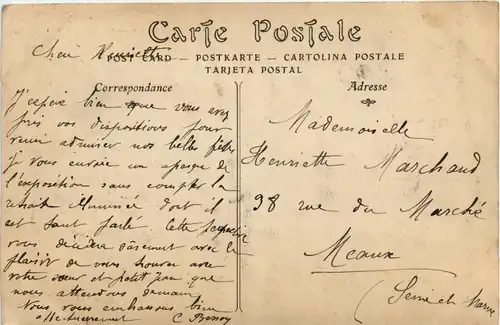 Carte Postale
Chère Henriette
POST CARD — POSTKARTE — CARTOLINA POSTALE
TARJETA POSTAL
Correspondance
J'espère bien que vous avez
pris vos dispositions pour
venir admirer nos belles fêtes
Je vous envoie un aperçu de
l'exposition sans compter la
retraite illuminée dont il
est tant parlé. Cette
vous décidera sûrement avec le
plaisir de vous trouver avec
votre sœur et petit Jean que
nous attendons demain
Nous vous embrassons bien
affectueusement C
Adresse
Mademoiselle
Henriette Marchand
98 rue du Marché
Meaux
(Seine et Marne